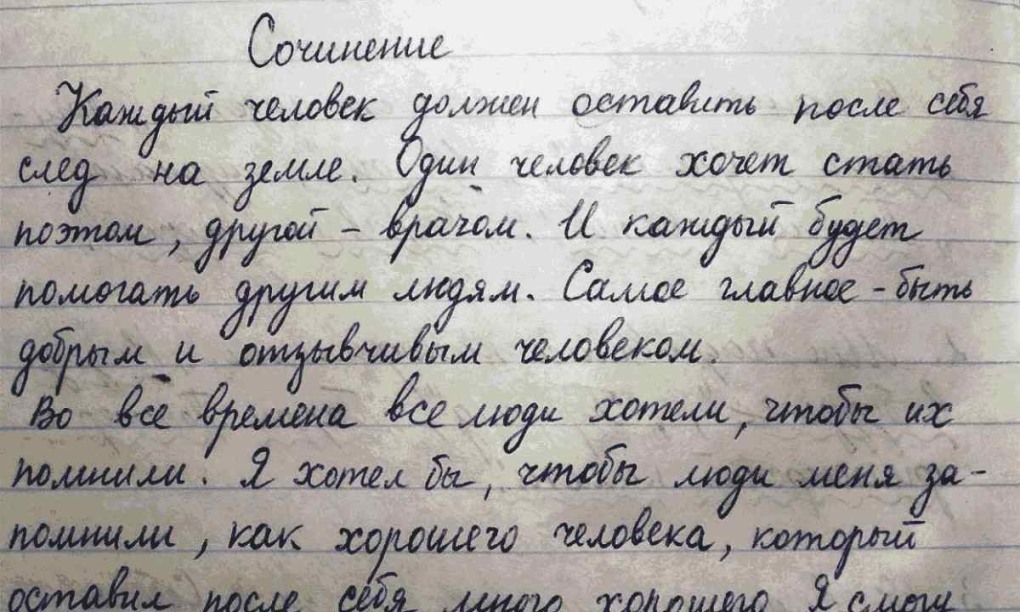 Сочинение
Каждый человек должен оставить после себя
след на земле. Один человек хочет стать
поэтом, другой - врачом. И каждый будет
помогать другим людям. Самое главное - быть
добрым и отзывчивым человеком.
Во все времена все люди хотели, чтобы их
помнили. Я хотел бы, чтобы люди меня за-
помнили, как хорошего человека, который
оставил после себя много хорошего. Я смогу